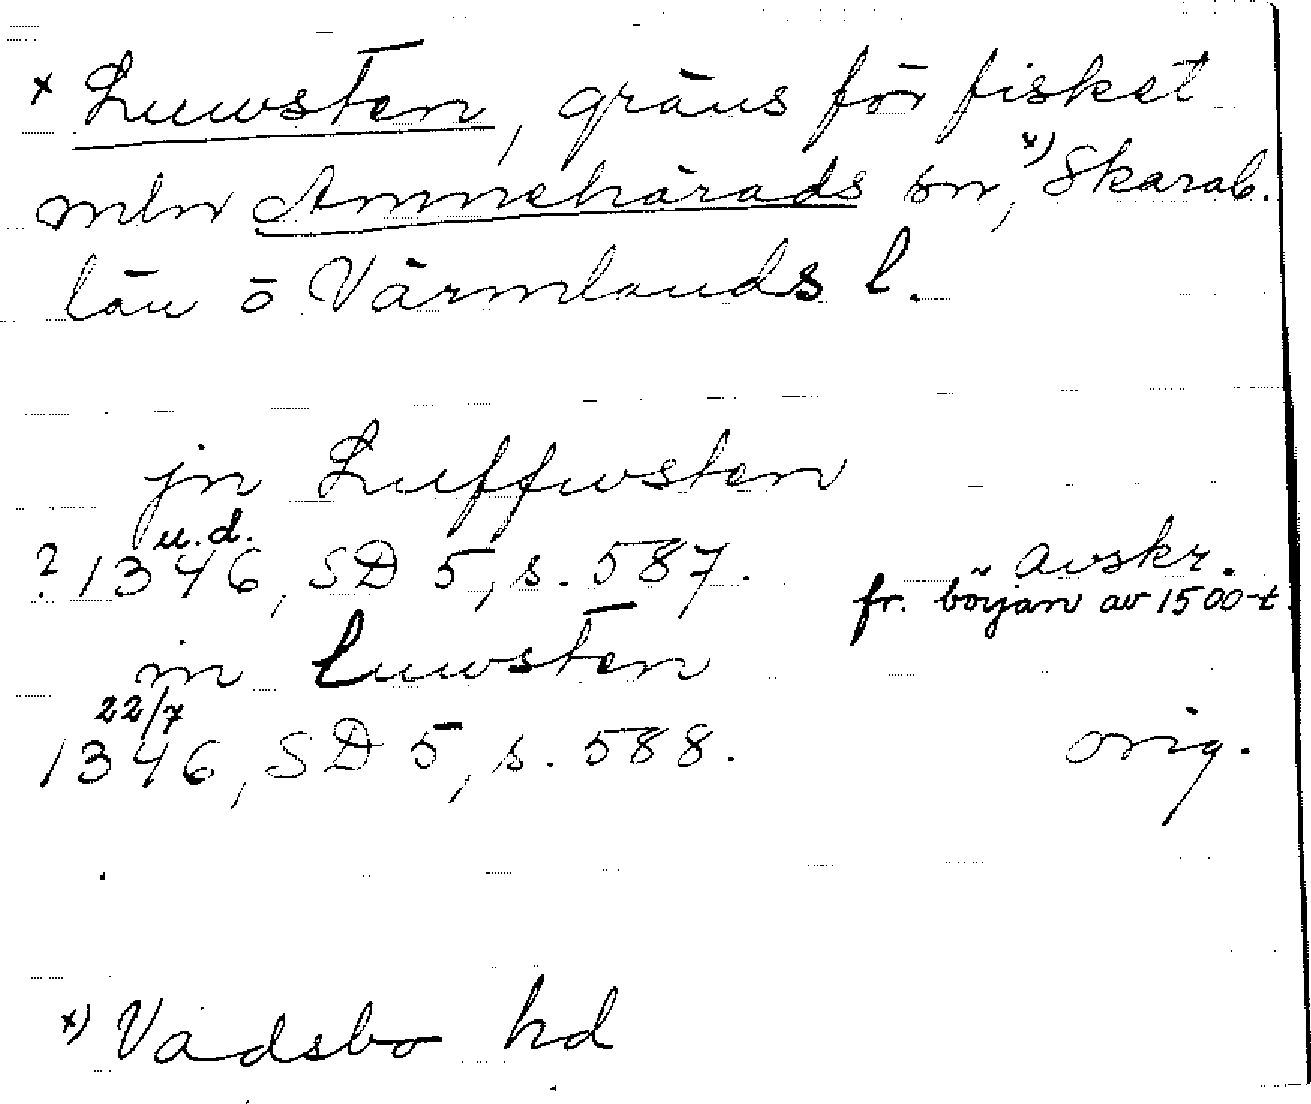 x Luwsten, gräns för fisket
mln Amnehärads sn, x) Skarab.
län ō Värmlands l.
jn Luffwsten
u.d.
? 1346, SD 5, s. 587. avskr.
fr. början av 1500-t.
in Luwsten
22/7
1346, SD 5, s. 588. orig.
x) Vadsbo hd